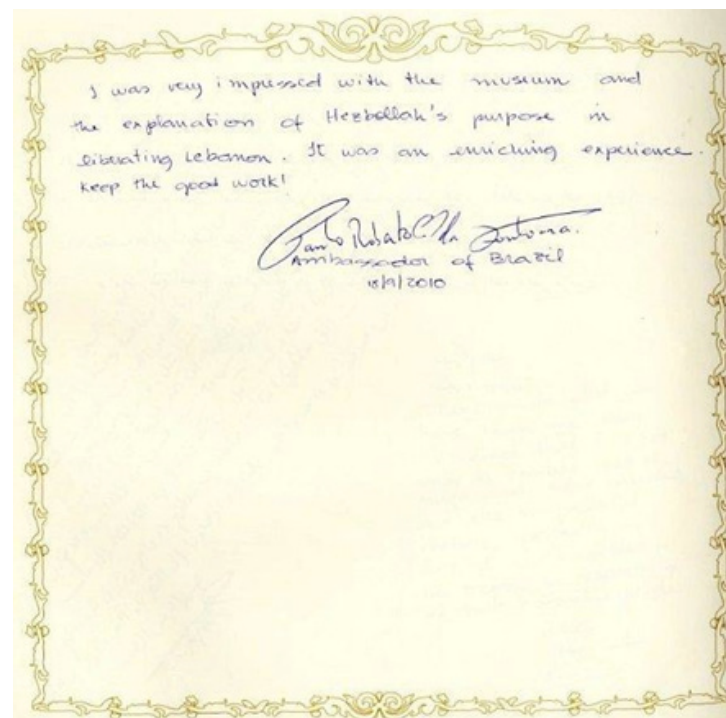 I was very impressed with the museum and
the explanation of Hezbollah's purpose in
liberating Lebanon. It was an enriching experience.
Keep the good work!
Paulo Roberto
Ambassador of Brazil
18/9/2010